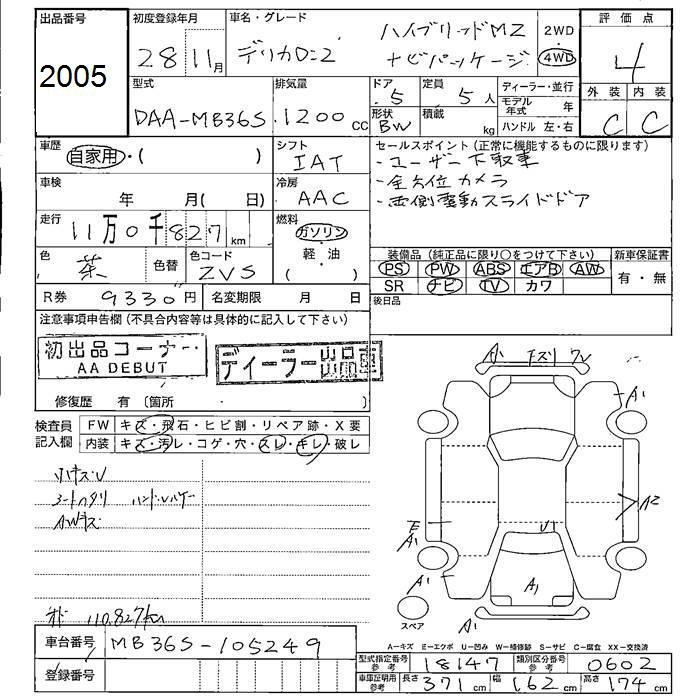 出品番号
2005
初度登録年月
28 11月
車名・グレード
デリカD:2
ハイブリッドMZ
ナビパッケージ
2WD
4WD
評価点
4
外装 内装
C C
型式
DAA-MB36S
排気量
1200 CC
ドア
5
形状
BW
定員
5人
積載
kg
ディーラー・並行
モデル年式 年
ハンドル 左・右
車歴
自家用・( )
シフト
IAT
車検
年 月( 日)
冷房
AAC
走行
11万0千827km
燃料
ガソリン
軽・油
( )
色
茶
色替
色コード
ZVS
R券 9330円
名変期限 月 日
セールスポイント(正常に機能するものに限ります)
・ユーザー下取車
・全方位カメラ
・両側電動スライドドア
装備品(純正品に限り○をつけて下さい)
PS PW ABS エアB AW
SR ナビ TV カワ
新車保証書
有・無
後日品
注意事項申告欄(不具合内容等は具体的に記入して下さい)
初出品コーナー
AA DEBUT
ディーラー出品車
修復歴 有(箇所 )
検査員記入欄
FW キズ・飛石・ヒビ割・リペア跡・X要
内装 キズ・汚レ・コゲ・穴・スレ・キレ・破レ
AWキズ
110.827km
A1
A1
A2
E
A1
A1
U1
A1
A1
スペア
A-キズ E-エクボ U-凹み W-補修跡 S-サビ C-腐食 XX-交換済
車台番号 MB36S-105249
登録番号
型式指定番号 参考 18147
類別区分番号 参考 0602
車庫証明用 参考 長さ 371cm 幅 162cm 高さ 174cm